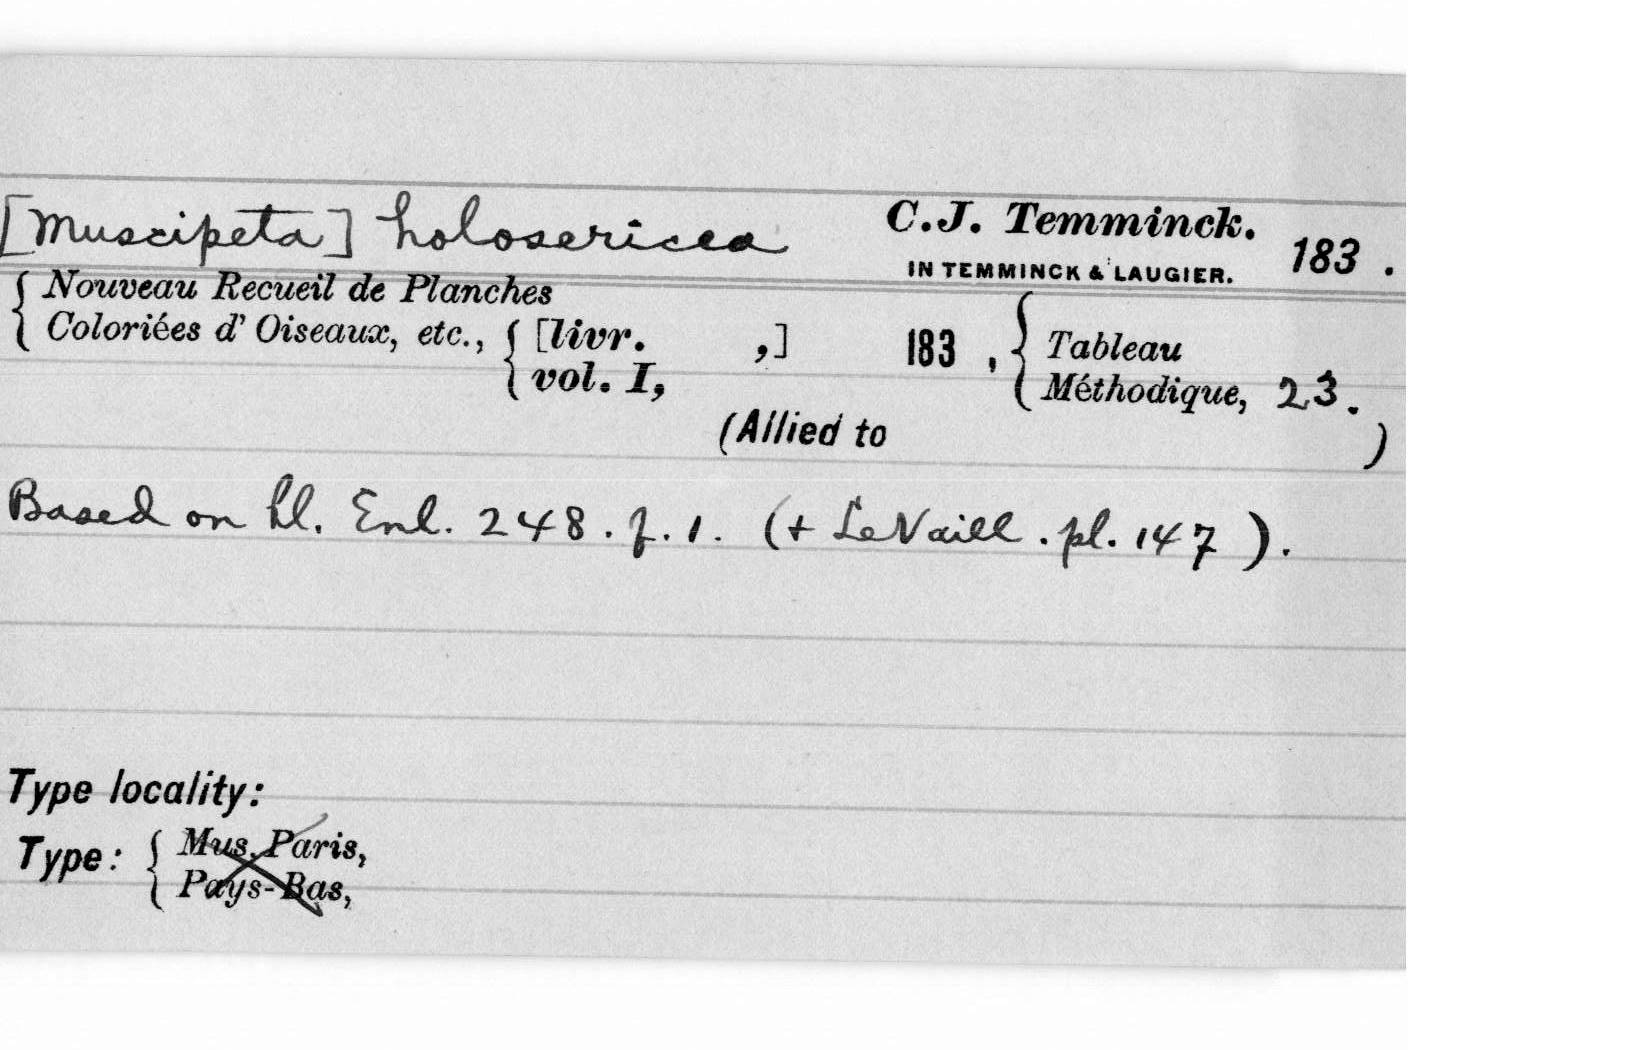 [Muscipeta] holosericea C.J. Temminck. 183.
IN TEMMINCK & LAUGIER.
{ Nouveau Recueil de Planches
Coloriées d' Oiseaux, etc., { [livr. ,] 183, { Tableau
vol. I, Méthodique, 23.
(Allied to )
Based on Pl. Enl. 248. f. 1. (+ LeVaill. pl. 147).
Type locality:
Type: { Mus. Paris,
Pays-Bas,